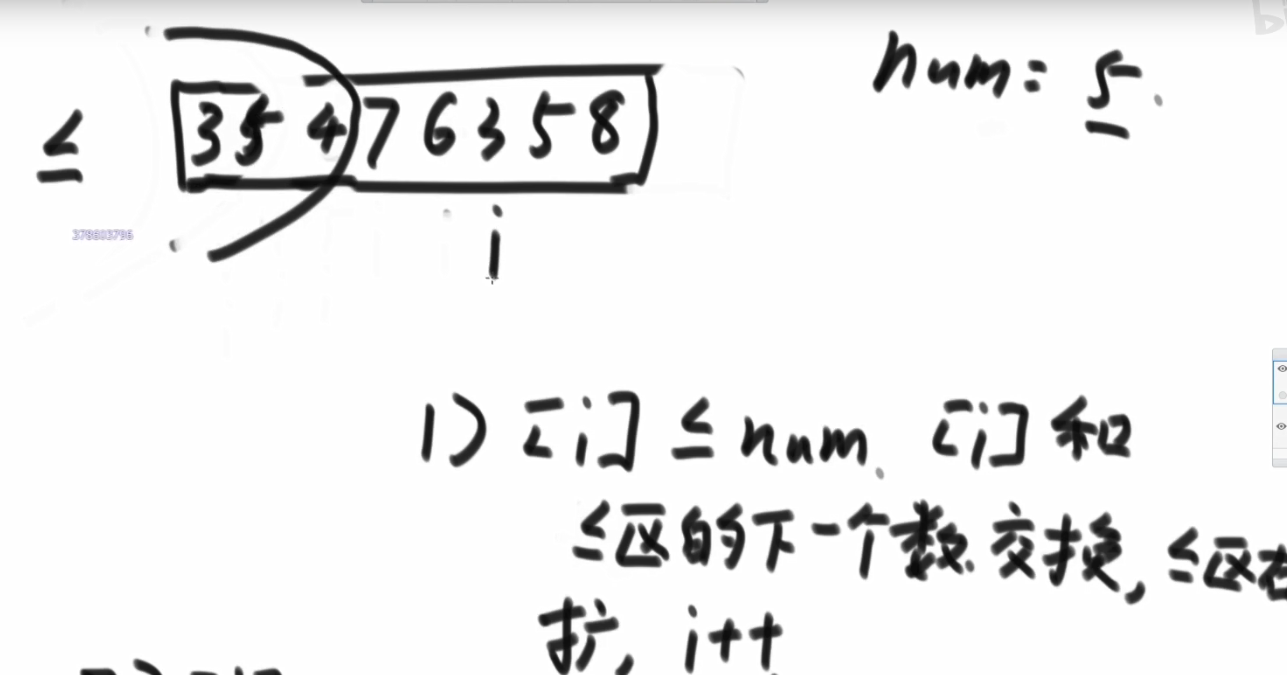 num: 5.
≤ 3 5 4 7 6 3 5 8
378603796
i
1) [i] ≤ num. [i] 和
≤区的下一个数交换, ≤区右
扩, i++